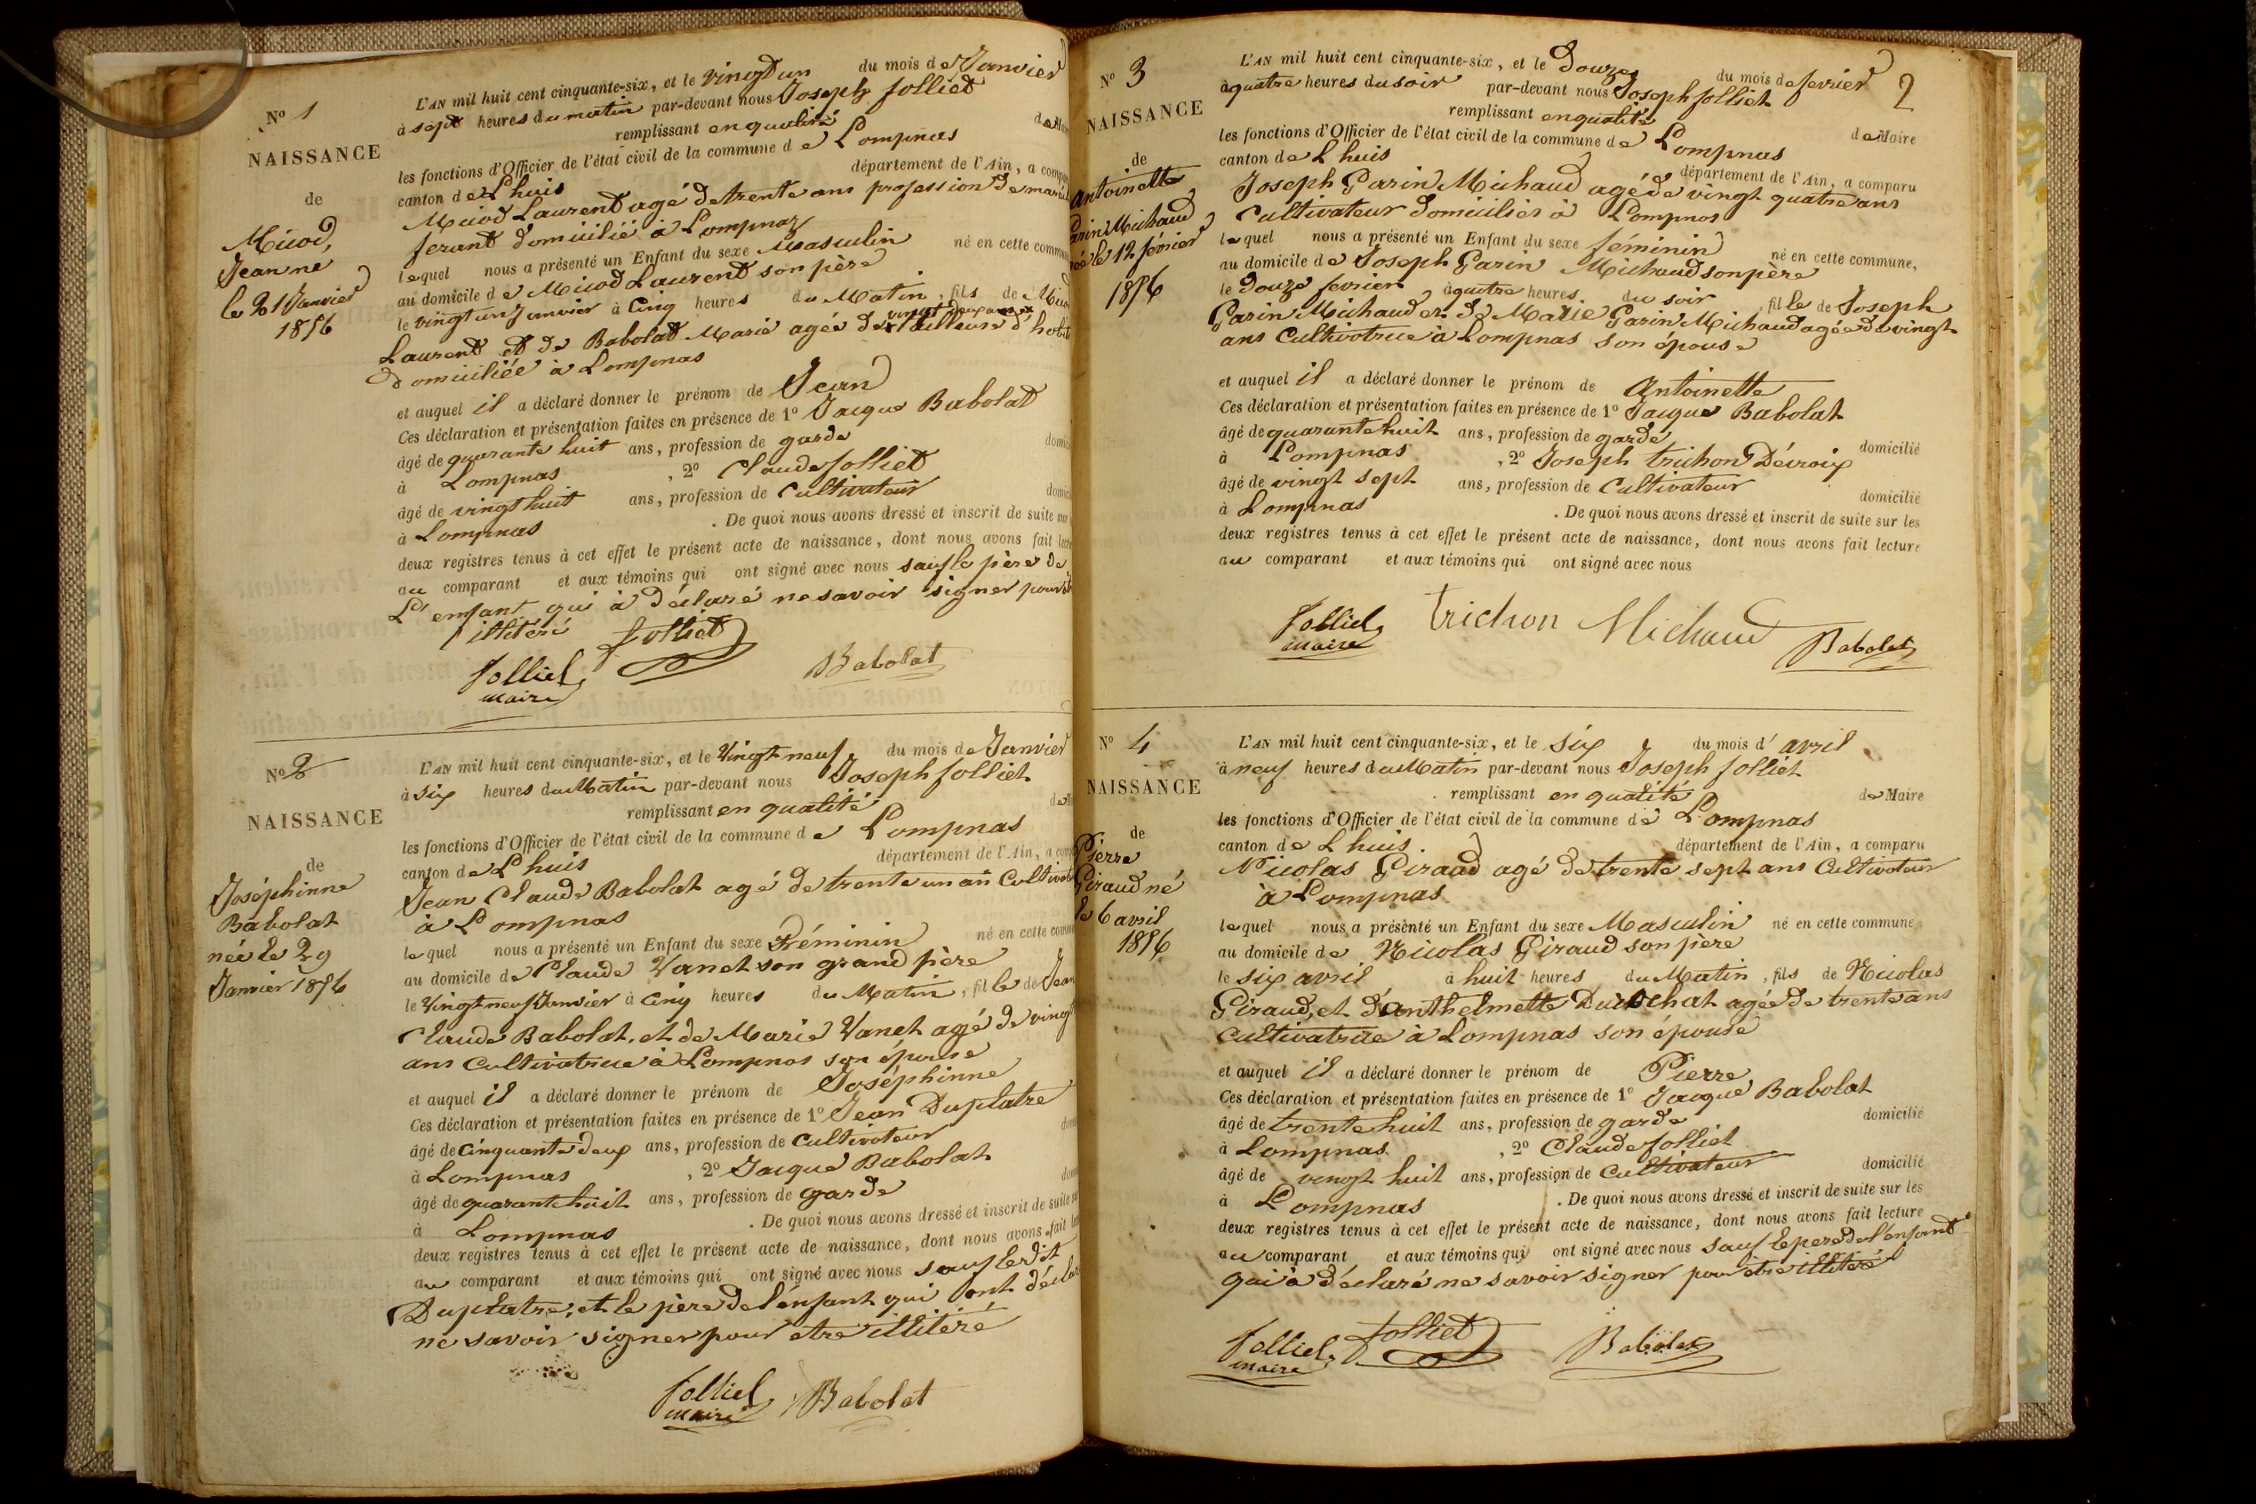 N° 1
NAISSANCE
de
Micod,
Jean né
le 21 Janvier
1856
L'AN mil huit cent cinquante-six, et le vingt un du mois de Janvier
à sept heures du matin par-devant nous Joseph Jolliet
remplissant en qualité de
les fonctions d'Officier de l'état civil de la commune de Lompnas
canton de Lhuis département de l'Ain, a
Micod Laurent agé de trente ans profession de
ferant domicilié à Lompnas
lequel nous a présenté un Enfant du sexe Masculin né en cette
au domicile de Micod Laurent son père
le vingt un Janvier à Cinq heures du Matin, fils de
vingt deux ans
Laurent et de Babolat Marie agée de tailleuse
domiciliée à Lompnas
et auquel il a déclaré donner le prénom de Jean
Ces déclaration et présentation faites en présence de 1° Jacque Babolat
âgé de quarante huit ans, profession de garde
à Lompnas, 2° Claude Jolliet
âgé de vingt huit ans, profession de Cultivateur
à Lompnas. De quoi nous avons dressé et inscrit de suite
deux registres tenus à cet effet le présent acte de naissance, dont nous avons fait
au comparant et aux témoins qui ont signé avec nous sauf le père de
L'enfant qui à déclaré ne savoir signer pour
illitéré Jolliet
Jolliet Babolat
maire
N° 2
NAISSANCE
de
Joséphinne
Babolat
née le 29
Janvier 1856
L'AN mil huit cent cinquante-six, et le Vingt neuf du mois de Janvier
à six heures du Matin par-devant nous Joseph Jolliet
remplissant en qualité de
les fonctions d'Officier de l'état civil de la commune de Lompnas
canton de Lhuis département de l'Ain, a
Jean Claude Babolat agé de trente un an
à Lompnas
lequel nous a présenté un Enfant du sexe Féminin né en cette
au domicile de Claude Vanet son grand père
le Vingt neuf Janvier à Cinq heures du Matin, fille de Jean
Claude Babolat, et de Marie Vanet agé de vingt
ans Cultivatrice à Lompnas son épouse
et auquel il a déclaré donner le prénom de Joséphinne
Ces déclaration et présentation faites en présence de 1° Jean Duplatre
âgé de Cinquante deux ans, profession de Cultivateur
à Lompnas, 2° Jacque Babolat
âgé de quarante huit ans, profession de garde
à Lompnas. De quoi nous avons dressé et inscrit de suite
deux registres tenus à cet effet le présent acte de naissance, dont nous avons fait
au comparant et aux témoins qui ont signé avec nous sauf ledit
Duplatre, et le père de l'énfant qui ont
ne savoir signer pour etre illitéré
Jolliet Babolat
maire
2
N° 3
NAISSANCE
de
Antoinette
Michaud
le 12 février
1856
L'AN mil huit cent cinquante-six, et le Douze du mois de fevrier
à quatre heures du soir par-devant nous Joseph Jolliet
remplissant en qualité de Maire
les fonctions d'Officier de l'état civil de la commune de Lompnas
canton de Lhuis département de l'Ain, a comparu
Joseph Garin Michaud agé de vingt quatre ans
Cultivateur domicilier à Lompnas
lequel nous a présenté un Enfant du sexe féminin né en cette commune,
au domicile de Joseph Garin Michaud son père
le Douze fevrier à quatre heures du soir fille de Joseph
Garin Michaud et de Marie Garin Michaud agée de vingt
ans Cultivatrice à Lompnas son épouse
et auquel il a déclaré donner le prénom de Antoinette
Ces déclaration et présentation faites en présence de 1° Jacque Babolat
âgé de quarante huit ans, profession de garde domicilié
à Lompnas, 2° Joseph trichon Décroix
âgé de vingt sept ans, profession de Cultivateur domicilié
à Lompnas. De quoi nous avons dressé et inscrit de suite sur les
deux registres tenus à cet effet le présent acte de naissance, dont nous avons fait lecture
au comparant et aux témoins qui ont signé avec nous
Jolliet trichon Michaud Babolat
maire
N° 4
NAISSANCE
de
Pierre
Giraud né
le 6 avril
1856
L'AN mil huit cent cinquante-six, et le six du mois d'avril
à neuf heures du Matin par-devant nous Joseph Jolliet
remplissant en qualité de Maire
les fonctions d'Officier de l'état civil de la commune de Lompnas
canton de Lhuis département de l'Ain, a comparu
Nicolas Giraud agé de trente sept ans Cultivateur
à Lompnas
lequel nous a présenté un Enfant du sexe Masculin né en cette commune
au domicile de Nicolas Giraud son père
le six avril à huit heures du Matin, fils de Nicolas
Giraud, et d'anthelmette agée de trente ans
Cultivatrice à Lompnas son épouse
et auquel il a déclaré donner le prénom de Pierre
Ces déclaration et présentation faites en présence de 1° Jacque Babolat
âgé de trente huit ans, profession de garde domicilié
à Lompnas, 2° Claude Jolliet
âgé de vingt huit ans, profession de Cultivateur domicilié
à Lompnas. De quoi nous avons dressé et inscrit de suite sur les
deux registres tenus à cet effet le présent acte de naissance, dont nous avons fait lecture
au comparant et aux témoins qui ont signé avec nous sauf le pere de l'enfant
qui à déclaré ne savoir signer pour etre illitéré
Jolliet Jolliet Babolat
maire